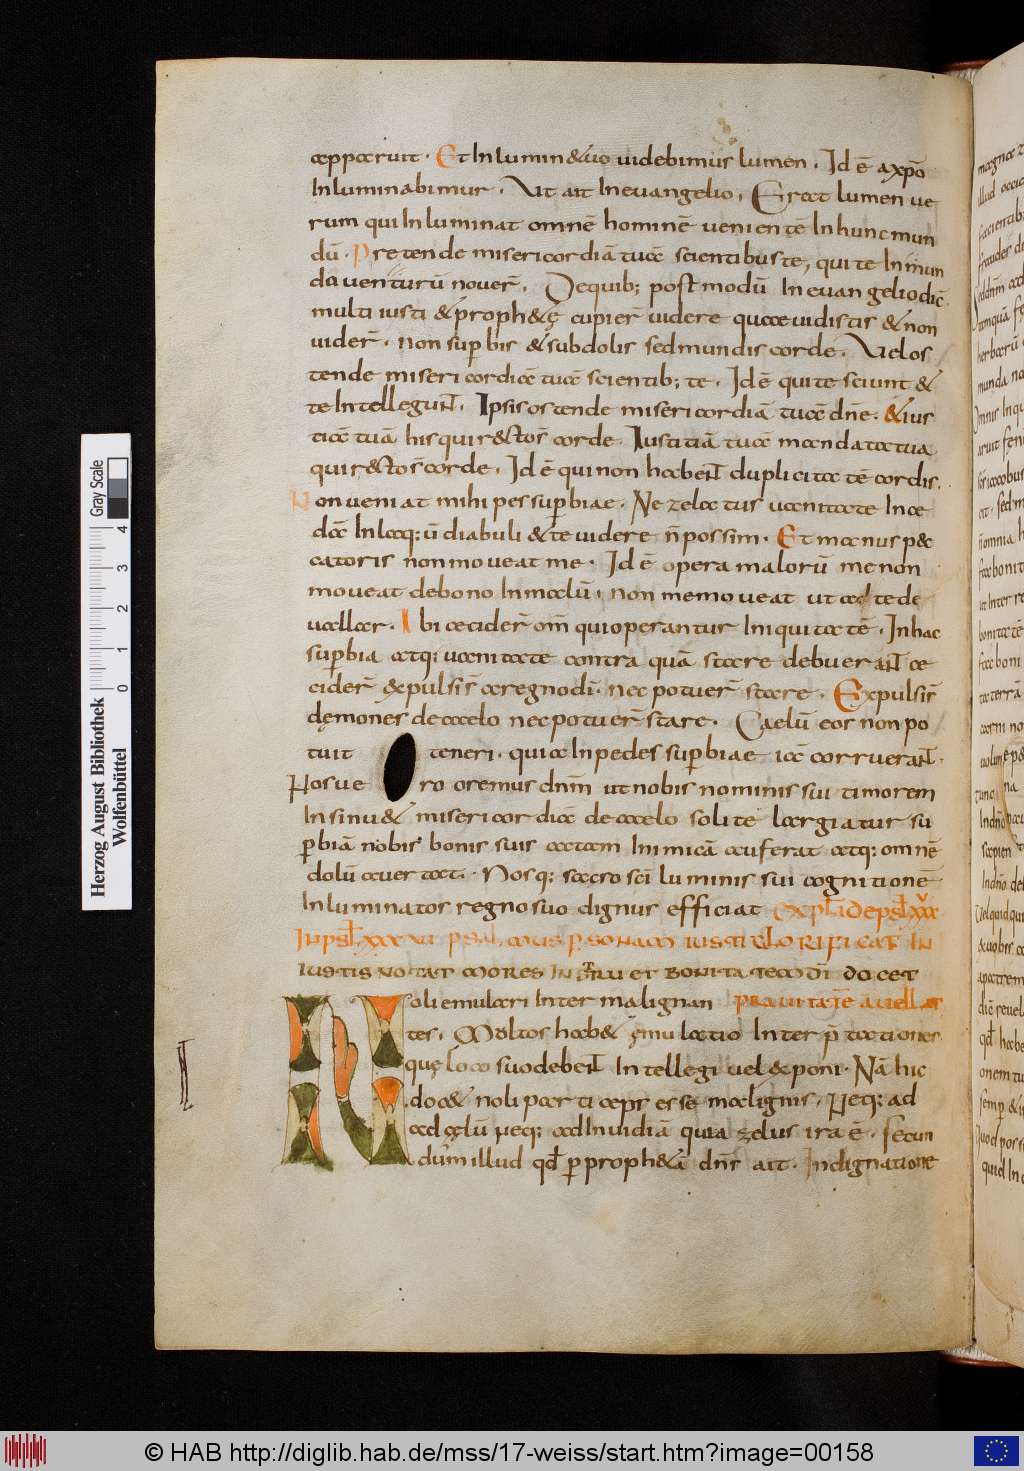 apparuit. Et In lumin& uo uidebimus lumen. Id ē a xpō
Inluminabimur. Ut ait In euangelio. Erat lumen ue
rum qui Inluminat omnē hominē uenientē In hunc mun
dū. Pretende misericordiā tuā scientibus te, qui te In mun
da uenturū nouer̄. De quib; postmodū In euangelio dic̄
multi iusti & proph&ę cupier̄ uidere quae uidistis & non
uider̄. non superbis & subdolis sed mundis corde. Vel os
tende misericordiā tuā scientib; te. Id ē qui te sciunt &
te Intellegunt. Ipsis ostende misericordiā tuā dn̄e. & ius
ticiā tuā his qui r&to s̄ corde. Iustitiā tuā mandata tua
qui r&to s̄ corde. Id ē qui non habent duplicitatē cordis.
Non ueniat mihi pes sup̱biae. Ne zelatus uanitate In ce
dā In laq;ū diaboli & te uidere n̄ possim. Et manus pec
catoris non moueat me. Id ē opera malorū me non
moueat de bono In malū, non me moueat ut ad te de
uallar. Ibi cecider̄ om̄ qui operantur Iniquitatē. In hac
sup̱bia atq; uanitate contra quā stare debuerant ce
cider̄ & expulsi s̄ a regno dī. nec potuer̄ stare. Expulsi s̄
dęmones de caelo nec potuer̄ stare. Caelū eos non po
tuit teneri. quia In pedes sup̱biae iā corruerant.
Nos uero oremus dn̄m ut nobis nominis sui timorem
In sinu & misericordiā de caelo solite largiatur su
p̱biā nobis bonis suis actam Inimicā auferat atq; omnē
dolū auertat. Nosq; sacrosc̄i luminis sui cognitionē
Inluminatos regno suo dignus efficiat EXPLĪ DE PSL XXXV
IN PSL XXXVI PSALMUS P̱SONAM IUSTI GLORIFICAT IN
IUSTIS NOTAT MORES IN STRUIT BONITATEM DĪ DOCET
Noli emulari Inter malignan PRAUITATĒ AUELLAT
tes. Moltos hab& ęmulatio Interp̄tationes
quę loco suo debent Intellegi uel exponi. Nā hic
doc& noli particeps esse malignis. Neq; ad
ad zęlū neq; ad Inuidiā quia zelus ira ē. secun
dum illud qđ p̱ proph&ā dn̄s ait. Indignatione
Herzog August Bibliothek
Wolfenbüttel
Gray Scale
0 1 2 3 4
© HAB http://diglib.hab.de/mss/17-weiss/start.htm?image=00158